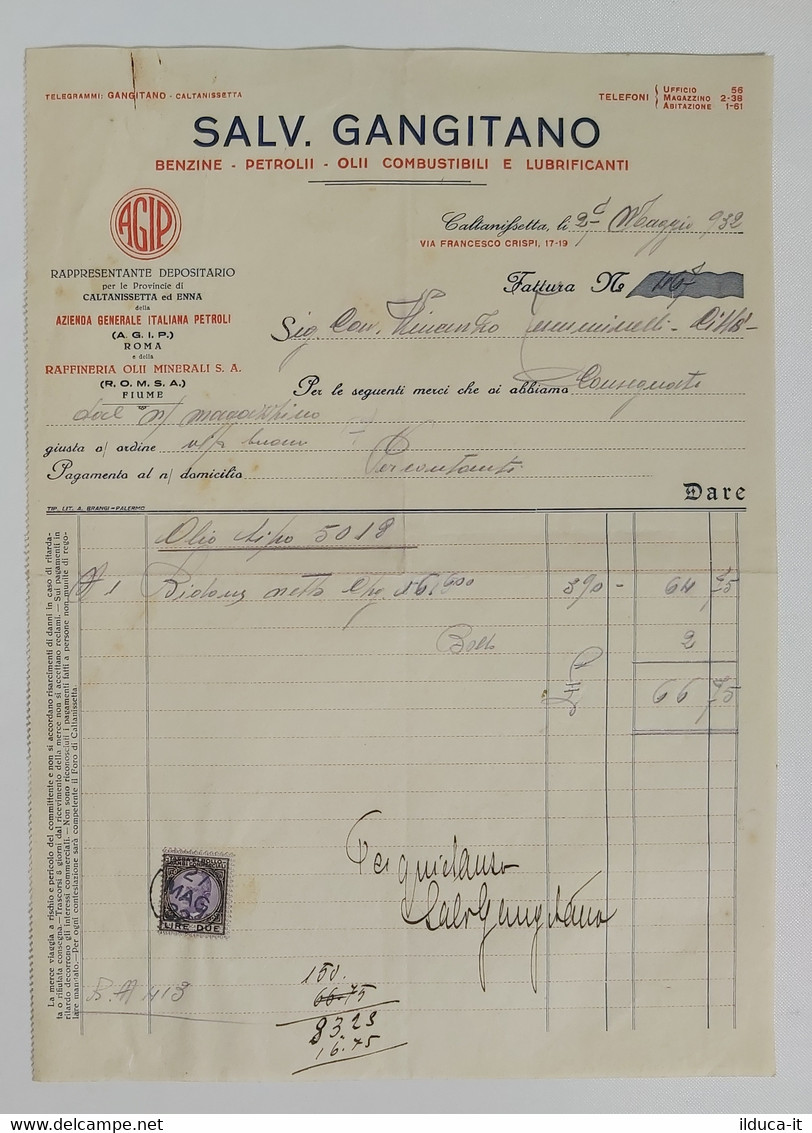 TELEGRAMMI: GANGITANO - CALTANISSETTA
TELEFONI
UFFICIO 56
MAGAZZINO 2-38
ABITAZIONE 1-61
SALV. GANGITANO
BENZINE - PETROLII - OLII COMBUSTIBILI E LUBRIFICANTI
AGIP
RAPPRESENTANTE DEPOSITARIO
per le Provincie di
CALTANISSETTA ed ENNA
della
AZIENDA GENERALE ITALIANA PETROLI
(A. G. I. P.)
ROMA
e della
RAFFINERIA OLII MINERALI S. A.
(R. O. M. S. A.)
FIUME
Caltanissetta, li Maggio 932
VIA FRANCESCO CRISPI, 17-19
Fattura N
Sig. Cav. Vincenzo - Città -
Per le seguenti merci che vi abbiamo Consegnate
dal n/ magazzino
giusta o/ ordine v/s buono
Pagamento al n/ domicilio Per contanti
Dare
TIP. LIT. A. BRANGI-PALERMO
Olio tipo 5018
N 1 Bidone netto Kg. 16,600 390 - 64 75
Bollo 2
66 75
La merce viaggia a rischio e pericolo del committente e non si accordano risarcimenti di danni in caso di ritarda-
ta o rifiutata consegna.—Trascorsi 8 giorni dal ricevimento della merce non si accettano reclami.—Sui pagamenti in
ritardo decorrono gli interessi commerciali.—Non sono riconosciuti i pagamenti fatti a persone non munite di rego-
lare mandato.—Per ogni contestazione sarà competente il Foro di Caltanissetta.
Per quietanza
Salv Gangitano
27
MAG
LIRE DUE
413
150.
66.75
83.25
16.75
ilduca-it